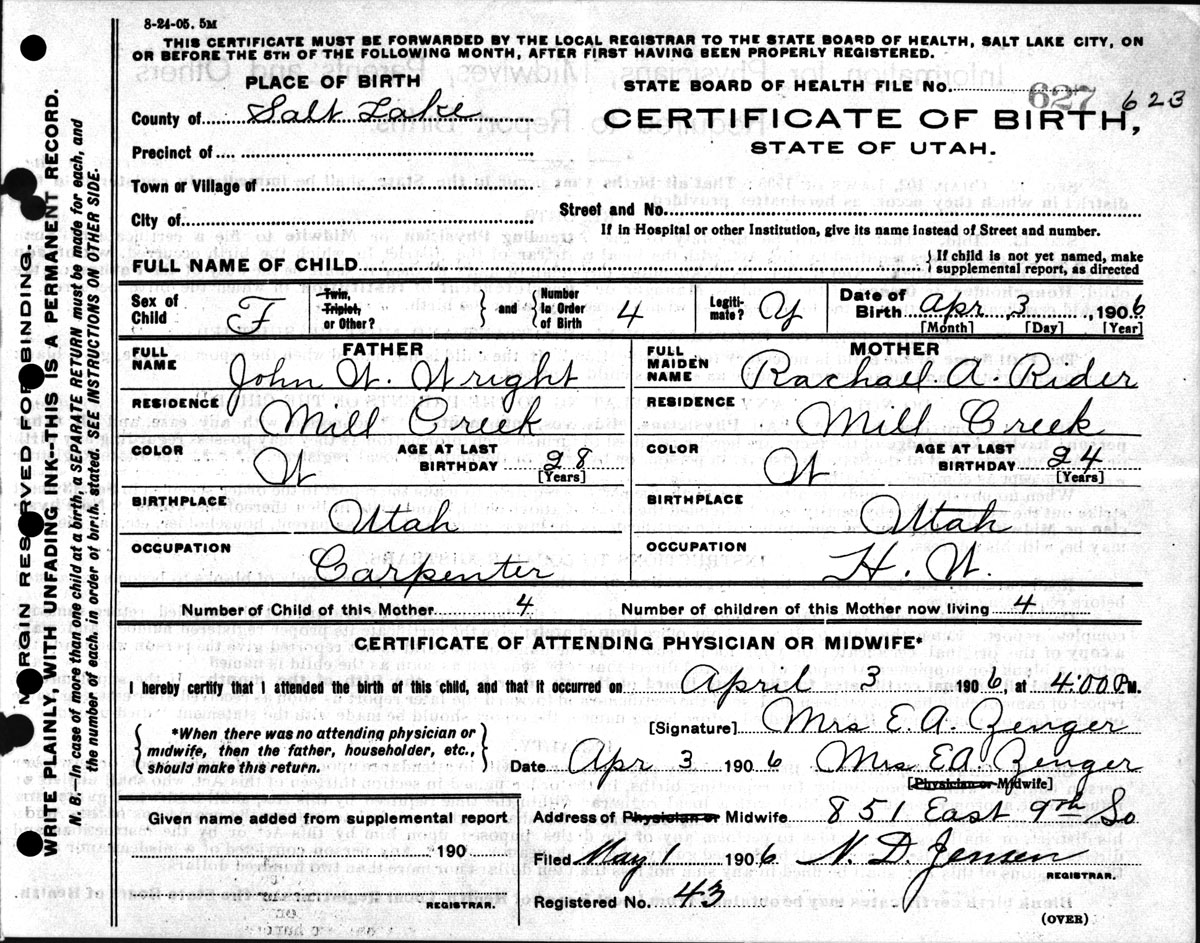 8-24-05. 5M
THIS CERTIFICATE MUST BE FORWARDED BY THE LOCAL REGISTRAR TO THE STATE BOARD OF HEALTH, SALT LAKE CITY, ON
OR BEFORE THE 5TH OF THE FOLLOWING MONTH, AFTER FIRST HAVING BEEN PROPERLY REGISTERED.
PLACE OF BIRTH
STATE BOARD OF HEALTH FILE No. 627 623
County of Salt Lake
CERTIFICATE OF BIRTH,
STATE OF UTAH.
Precinct of
Town or Village of
City of
Street and No.
If in Hospital or other Institution, give its name instead of Street and number.
FULL NAME OF CHILD
} If child is not yet named, make
supplemental report, as directed
Sex of Child F Twin, Triplet, or Other? } and { Number In Order of Birth 4 Legitimate? Y Date of Birth Apr 3 1906
[Month] [Day] [Year]
FATHER
FULL NAME John W. Wright
RESIDENCE Mill Creek
COLOR W AGE AT LAST BIRTHDAY 28
[Years]
BIRTHPLACE Utah
OCCUPATION Carpenter
MOTHER
FULL MAIDEN NAME Rachael A. Rider
RESIDENCE Mill Creek
COLOR W AGE AT LAST BIRTHDAY 24
[Years]
BIRTHPLACE Utah
OCCUPATION H. W.
Number of Child of this Mother 4 Number of children of this Mother now living 4
CERTIFICATE OF ATTENDING PHYSICIAN OR MIDWIFE*
I hereby certify that I attended the birth of this child, and that it occurred on April 3 1906, at 4:00 P M.
{ *When there was no attending physician or
midwife, then the father, householder, etc.,
should make this return. }
[Signature] Mrs E.A. Zenger
Date Apr 3 1906 Mrs E.A. Zenger
[Physician or Midwife]
Given name added from supplemental report
190
REGISTRAR.
Address of Physician or Midwife 851 East 9th So
Filed May 1 1906 N. D. Jensen
REGISTRAR.
Registered No. 43
(OVER)
MARGIN RESERVED FOR BINDING.
WRITE PLAINLY, WITH UNFADING INK--THIS IS A PERMANENT RECORD.
N. B.—In case of more than one child at a birth, a SEPARATE RETURN must be made for each, and
the number of each, in order of birth, stated. SEE INSTRUCTIONS ON OTHER SIDE.